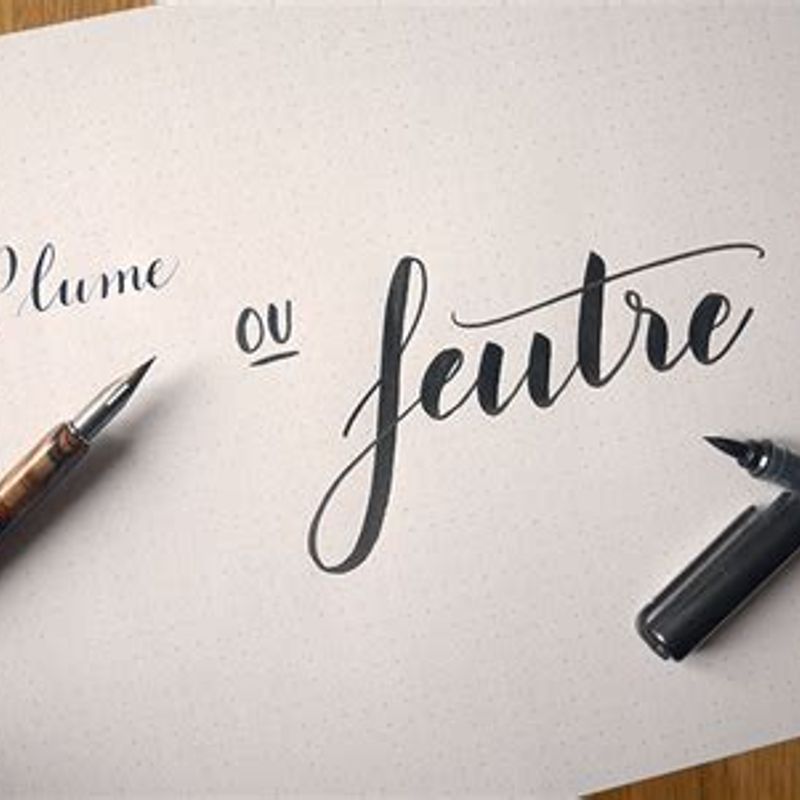 Plume
ou
feutre